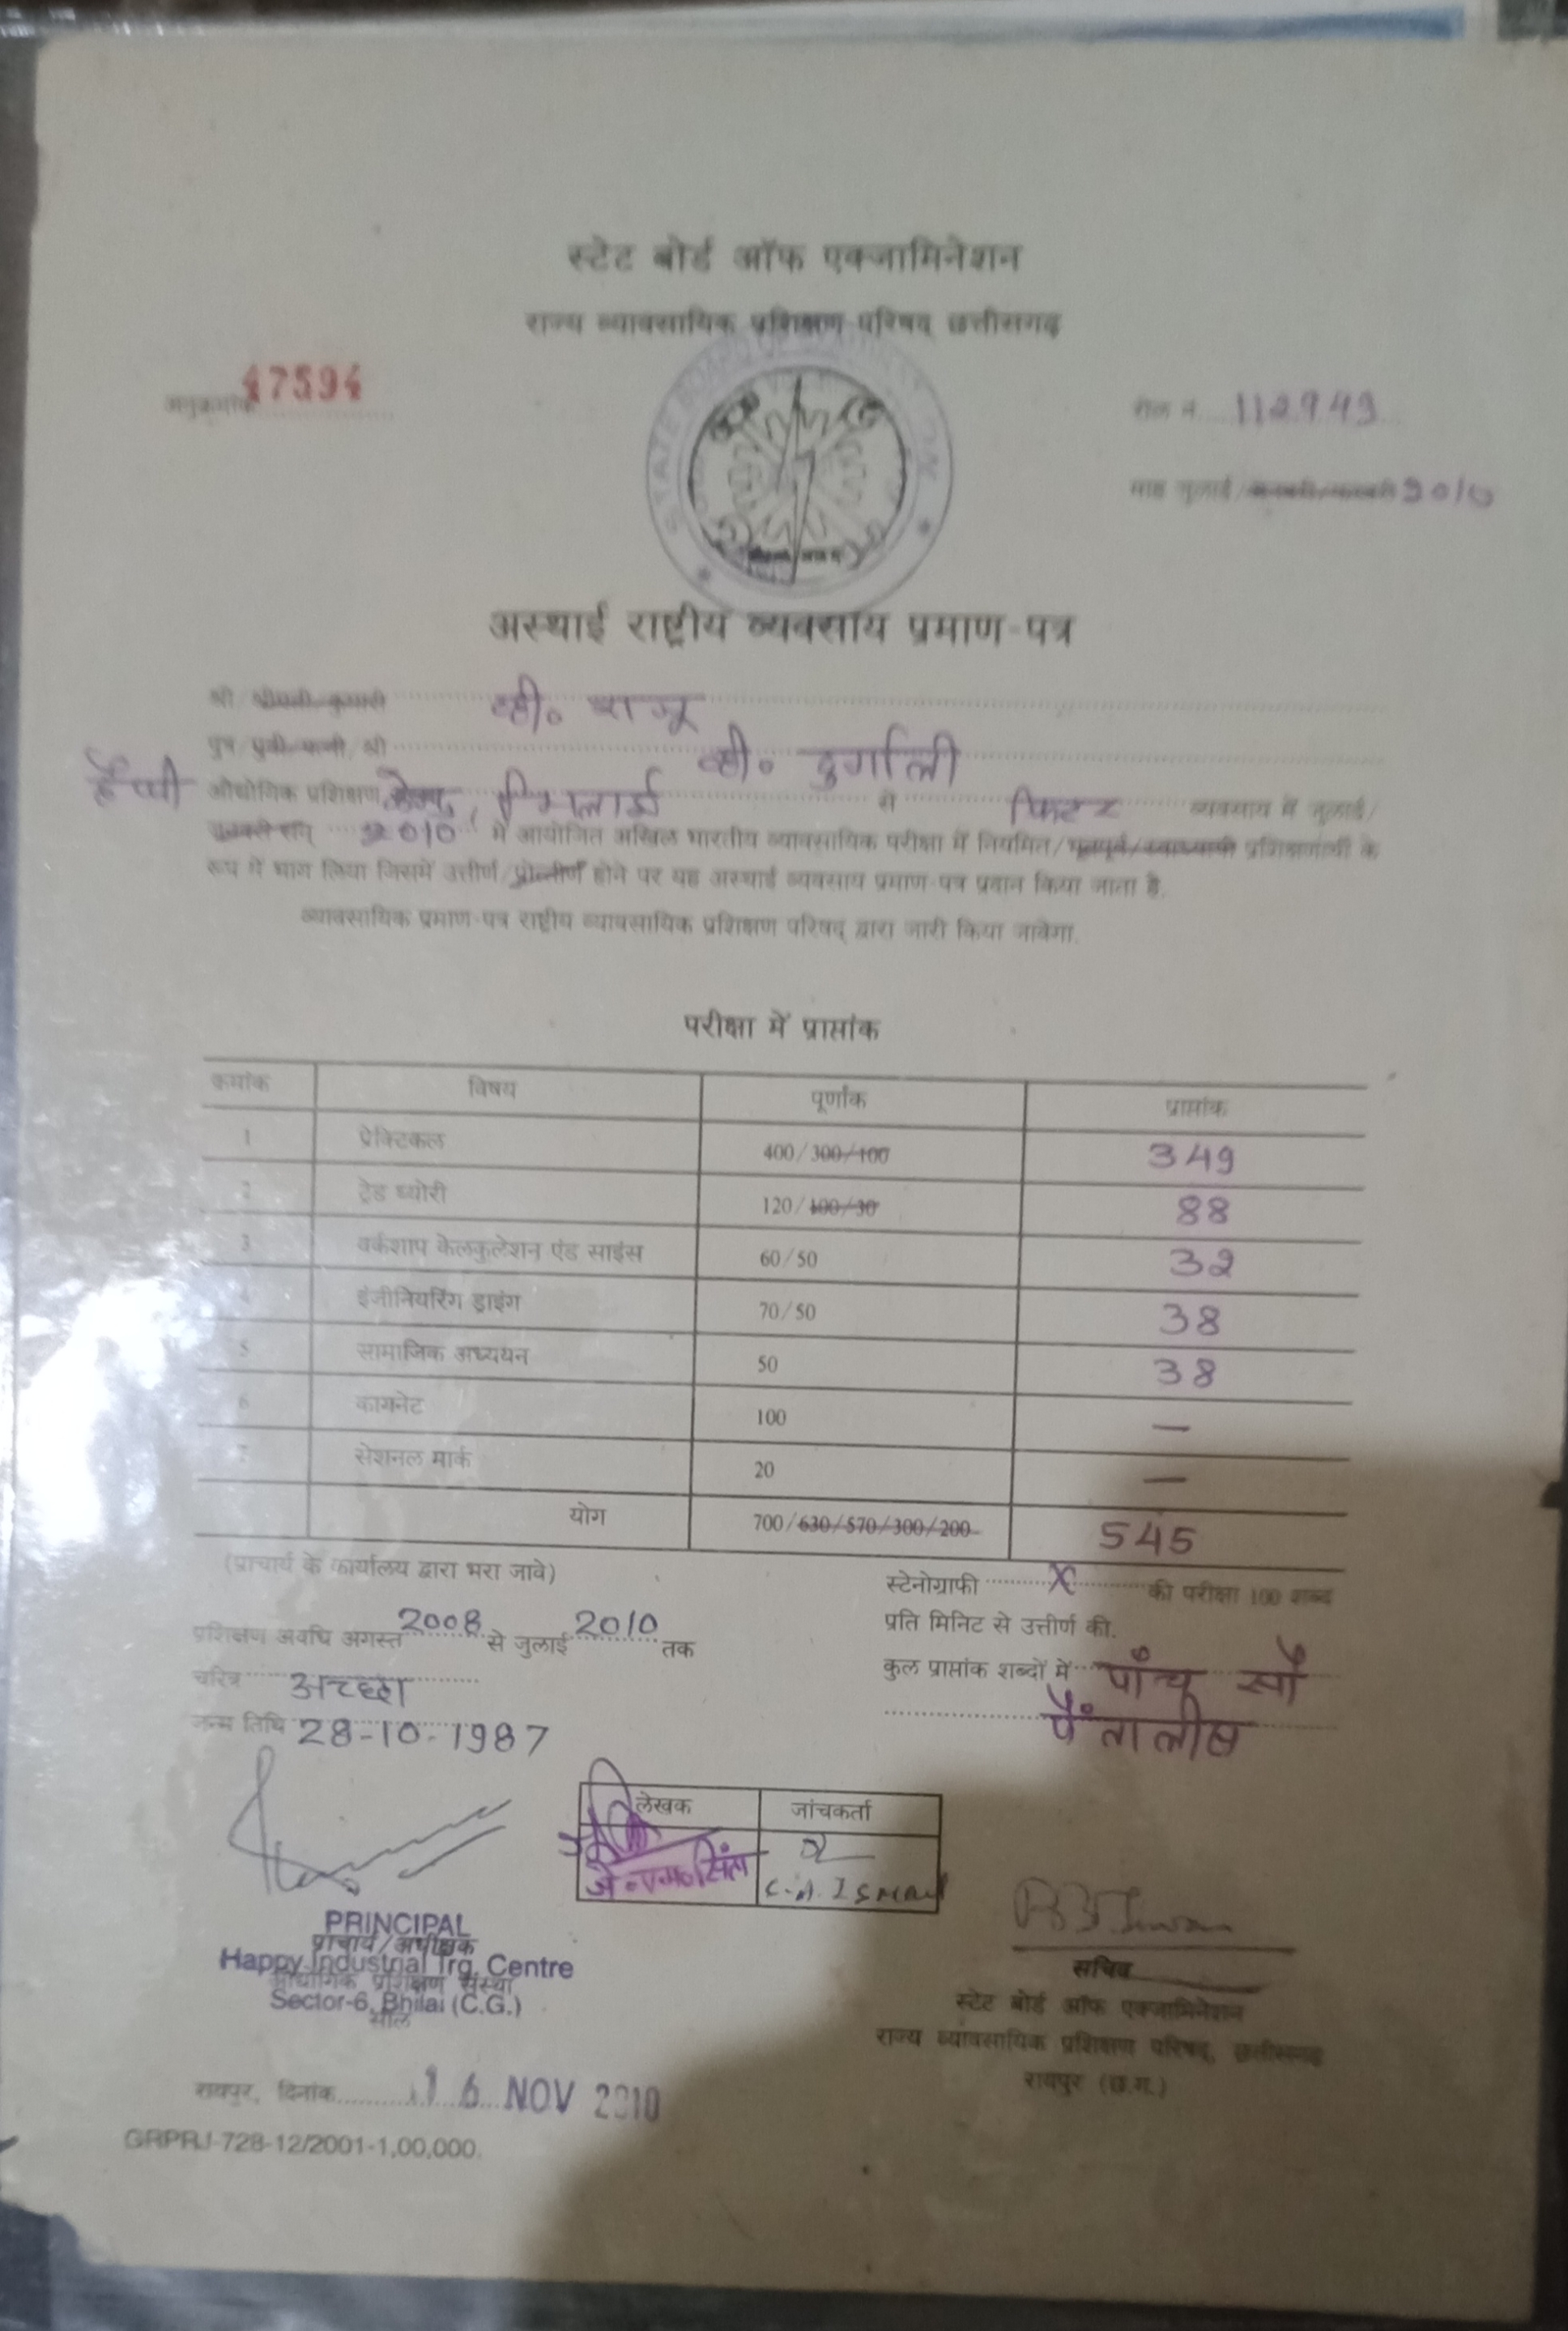 स्टेट बोर्ड ऑफ एक्जामिनेशन
राज्य व्यावसायिक प्रशिक्षण परिषद् छत्तीसगढ़
अनुक्रमांक 47594
रोल नं. 112949
माह जुलाई/जनवरी/फरवरी 2010
STATE BOARD OF
अस्थाई राष्ट्रीय व्यवसाय प्रमाण-पत्र
श्री श्रीमती कुमारी व्ही. राजू
पुत्र पुत्री पत्नी, श्री व्ही. दुर्गाली
हैप्पी औद्योगिक प्रशिक्षण केन्द्र, भिलाई से फिटर व्यवसाय में जुलाई/
जनवरी सन् 2010 में आयोजित अखिल भारतीय व्यावसायिक परीक्षा में नियमित/भूतपूर्व/स्वाध्यायी प्रशिक्षणार्थी के
रूप में भाग लिया जिसमें उत्तीर्ण/प्रोत्तीर्ण होने पर यह अस्थाई व्यवसाय प्रमाण-पत्र प्रदान किया जाता है.
व्यावसायिक प्रमाण-पत्र राष्ट्रीय व्यावसायिक प्रशिक्षण परिषद् द्वारा जारी किया जावेगा.
परीक्षा में प्राप्तांक
कमांक विषय पूर्णांक प्राप्तांक
1 प्रेक्टिकल 400/300/100 349
2 ट्रेड थ्योरी 120/100/30 88
3 वर्कशाप केलकुलेशन एंड साइंस 60/50 32
4 इंजीनियरिंग ड्राइंग 70/50 38
5 सामाजिक अध्ययन 50 38
6 कायनेट 100 —
7 सेशनल मार्क 20 —
योग 700/630/570/300/200 545
(प्राचार्य के कार्यालय द्वारा भरा जावे)
स्टेनोग्राफी X की परीक्षा 100 शब्द
प्रति मिनिट से उत्तीर्ण की.
प्रशिक्षण अवधि अगस्त 2008 से जुलाई 2010 तक
कुल प्राप्तांक शब्दों में पाँच सौ
पैंतालीस
चरित्र अच्छा
जन्म तिथि 28-10-1987
लेखक जांचकर्ता
C.A. Ismail
PRINCIPAL
प्राचार्य/अधीक्षक
Happy Industrial Trg. Centre
औद्योगिक प्रशिक्षण संस्था
Sector-6, Bhilai (C.G.)
सील
सचिव
स्टेट बोर्ड ऑफ एक्जामिनेशन
राज्य व्यावसायिक प्रशिक्षण परिषद्, छत्तीसगढ़
रायपुर (छ.ग.)
रायपुर, दिनांक 16 NOV 2010
GRPRJ-728-12/2001-1,00,000.